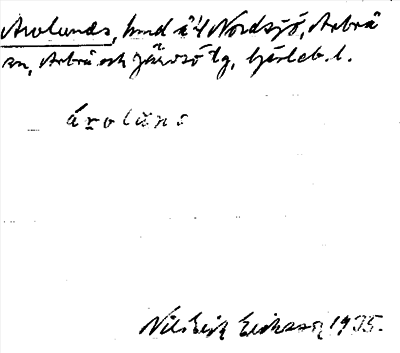 Arolunds, hmd å 4 Nordsjö, Arbrå
sn, Arbrå och Järvsö tg, Gävleb. l.
árolūns
Nils Erik Eriksson 1935.